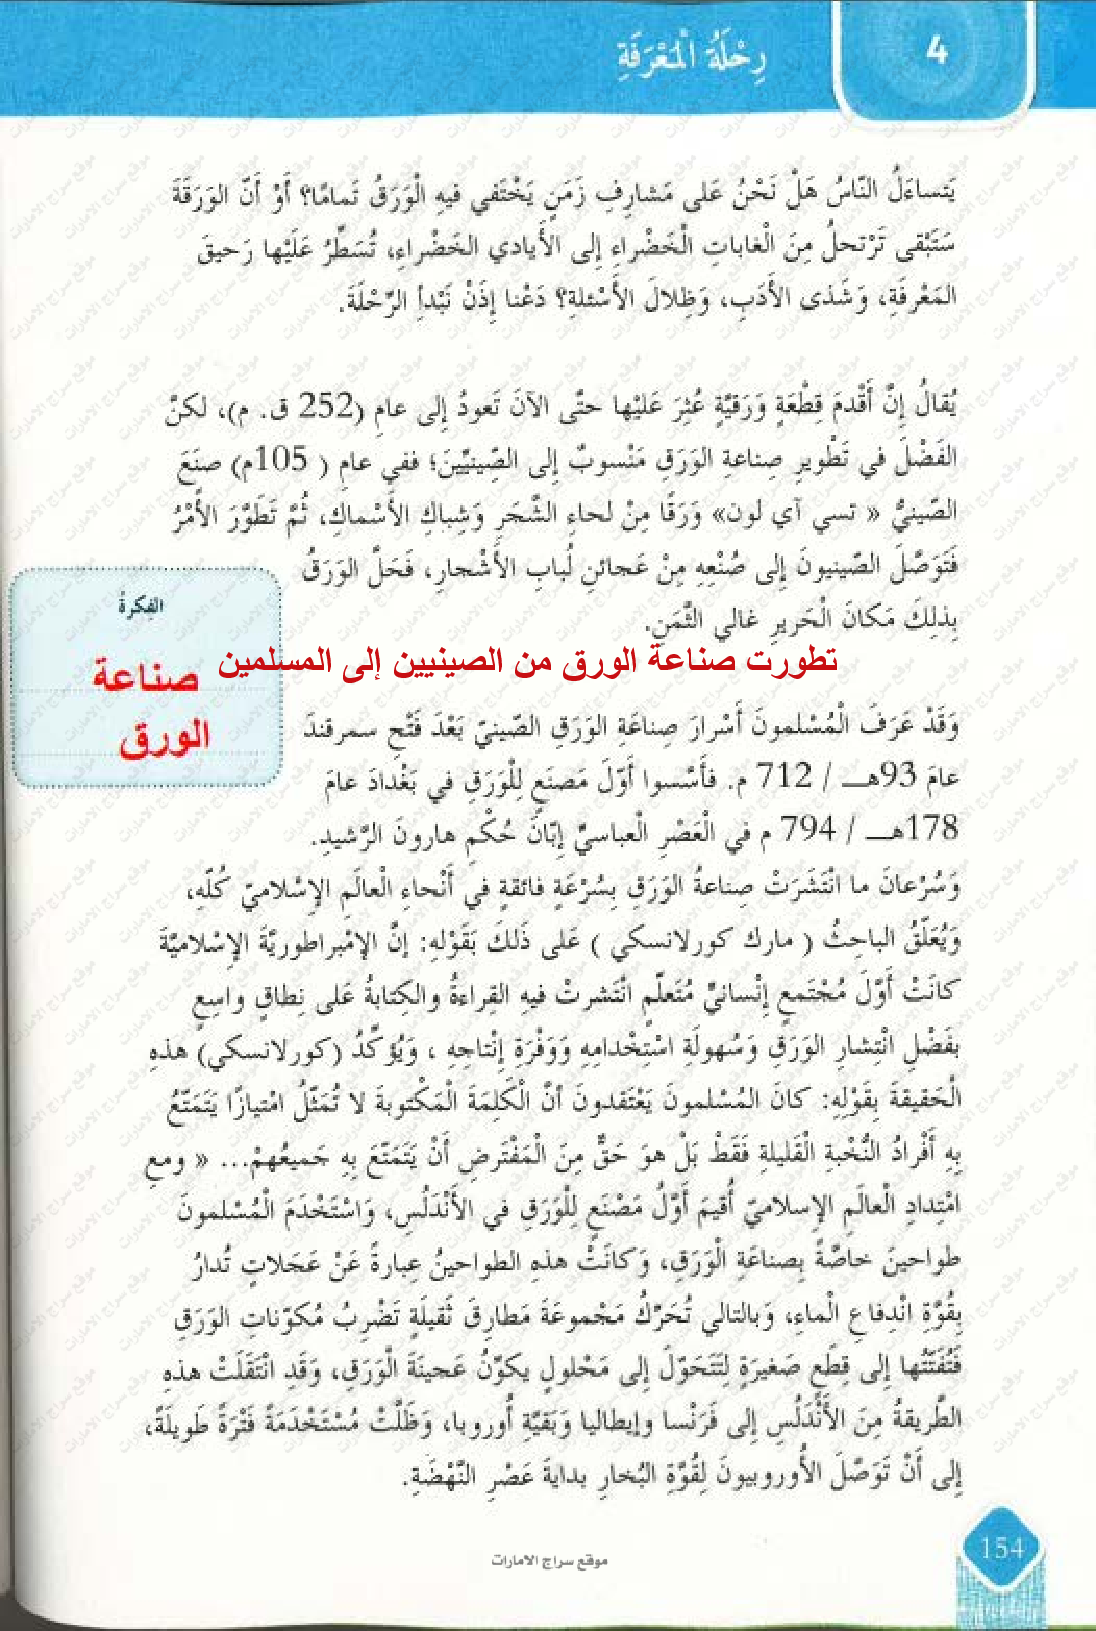 4
رِحْلَةُ الْمَعْرِفَةِ
يَتساءَلُ النّاسُ هَلْ نَحْنُ عَلى مَشارِفِ زَمَنٍ يَخْتَفي فيهِ الْوَرَقُ تَمامًا؟ أَوْ أَنّ الوَرَقَةَ
سَتَبْقى تَرْتحلُ مِنَ الْغاباتِ الْخَضْراءِ إِلى الأَيادي الخَضْراءِ، تُسَطَّرُ عَلَيْها رَحيقَ
المَعْرِفَةِ، وَشَذى الأَدَبِ، وَظِلالَ الأَسْئلةِ؟ دَعْنا إِذَنْ نَبْدأِ الرّحْلَةَ.
يُقالُ إِنَّ أَقْدمَ قِطْعَةٍ وَرَقيّةٍ عُثِرَ عَلَيْها حتّى الآنَ تَعودُ إِلى عامِ (252 ق. م)، لكنّ
الفَضْلَ في تَطْويرِ صِناعةِ الوَرَقِ مَنْسوبٌ إِلى الصّينيّينَ؛ ففي عامِ ( 105م) صنَعَ
الصّينيُّ « تسي آي لون» وَرَقًا مِنْ لحاءِ الشَّجَرِ وَشِباكِ الأَسْماكِ، ثُمّ تَطَوَّرَ الأَمْرُ
فَتَوَصَّلَ الصّينيونَ إِلى صُنْعِهِ مِنْ عَجائنِ لُبابِ الأَشْجارِ، فَحَلَّ الوَرَقُ
بِذلِكَ مَكانَ الْحَريرِ غالي الثَّمَنِ.
الفِكرةُ
صناعة
الورق
تطورت صناعة الورق من الصينيين إلى المسلمين
وَقَدْ عَرَفَ الْمُسْلمونَ أَسْرارَ صِناعَةِ الوَرَقِ الصّينيّ بَعْدَ فَتْحِ سمرقندَ
عامَ 93هـ / 712 م. فأَسَّسوا أَوّلَ مَصنَعٍ لِلْوَرَقِ في بَغْدادَ عامَ
178هـ / 794 م في الْعَصْرِ الْعباسيِّ إِبّانَ حُكْمِ هارونَ الرَّشيدِ.
وَسُرْعانَ ما انْتَشَرَتْ صِناعةُ الوَرَقِ بِسُرْعَةٍ فائقةٍ في أَنْحاءِ الْعالَمِ الإِسْلاميّ كُلّهِ،
وَيُعَلّقُ الباحِثُ ( مارك كورلانسكي ) عَلى ذَلكَ بَقَوْلهِ: إِنَّ الإِمْبراطوريّةَ الإِسْلاميّةَ
كانَتْ أَوّلَ مُجْتَمعٍ إِنْسانيٍّ مُتَعلّمٍ انْتَشرتْ فيهِ القِراءةُ والكِتابةُ عَلى نِطاقٍ واسِعٍ
بِفَضْلِ انْتِشارِ الوَرَقِ وَسُهولَةِ اسْتِخْدامِهِ وَوَفْرَةِ إِنْتاجِهِ ، وَيُؤكِّدُ (كورلانسكي) هذهِ
الْحَقيقةَ بِقَوْلِهِ: كانَ المُسْلمونَ يَعْتَقدونَ أنَّ الْكَلِمَةَ الْمَكْتوبةَ لا تُمَثّلُ امْتيازًا يَتَمَتّعُ
بِهِ أَفْرادُ النُّخْبةِ الْقَليلةِ فَقَطْ بَلْ هوَ حَقٌّ مِنَ الْمَفْتَرضِ أَنْ يَتَمَتّعَ بِهِ جَميعُهمْ... « ومعِ
امْتِدادِ الْعالَمِ الإِسلاميّ أُقيمَ أَوّلُ مَصْنَعٍ لِلْوَرَقِ في الأَنْدَلُسِ، وَاسْتَخْدَمَ الْمُسْلمونَ
طواحينَ خاصّةً بِصناعَةِ الْوَرَقِ، وَكانَتْ هذهِ الطواحينُ عِبارةً عَنْ عَجَلاتٍ تُدارُ
بِقُوّةِ انْدِفاعِ الْماءِ، وَبالتالي تُحَرّكُ مَجْموعَةَ مَطارِقَ ثَقيلَةٍ تَضْرِبُ مُكوّناتِ الوَرَقِ
فَتُفَتّتُها إِلى قِطَعٍ صَغيرَةٍ لِتَتَحَوّلَ إِلى مَحْلولٍ يكوّنُ عَجينَةَ الْوَرَقِ، وَقَدِ انْتَقَلَتْ هذهِ
الطَّريقةُ مِنَ الأَنْدَلُسِ إِلى فَرَنْسا وإِيطاليا وَبَقيّةِ أُوروبا، وَظَلَّتْ مُسْتَخْدَمَةً فَتْرَةً طَويلَةً،
إِلى أَنْ تَوَصّلَ الأُوروبيونَ لِقُوّةِ البُخارِ بدايةَ عَصْرِ النَّهْضَةِ.
154
موقع سراج الامارات